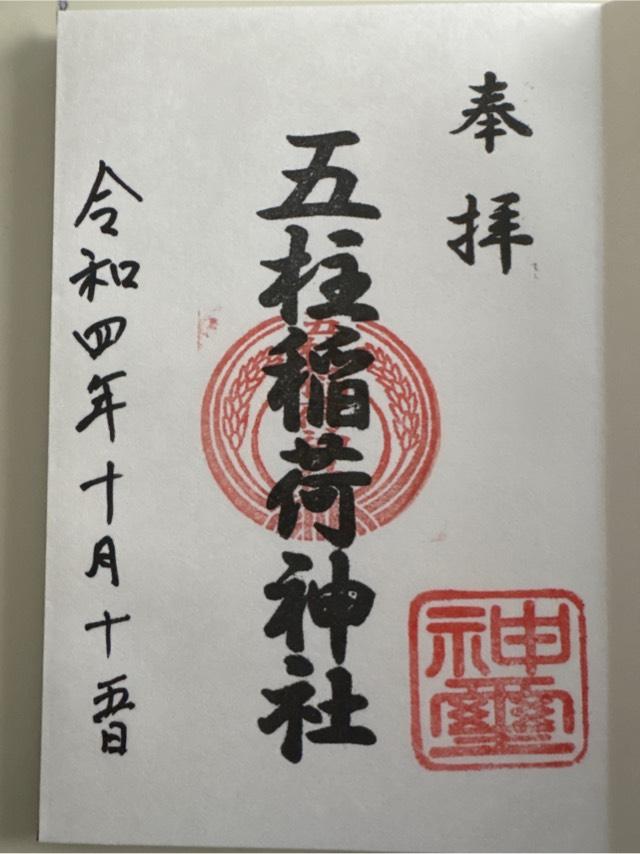 奉拝
五柱稲荷神社
神璽
令和四年十月十五日